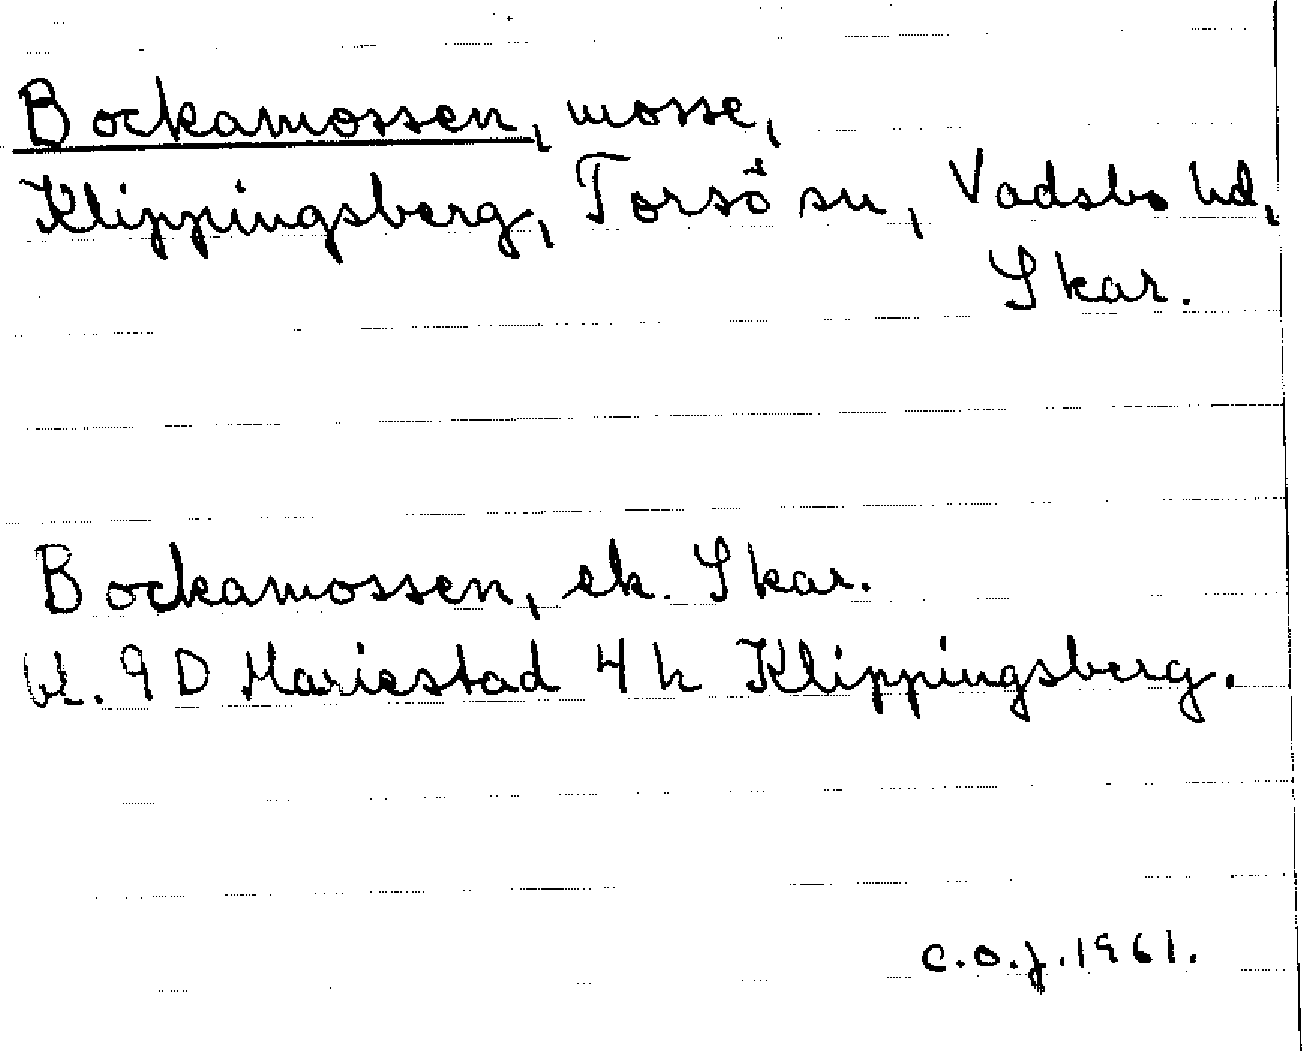 Bockamossen, mosse,
Klippingsberg, Torsö sn, Vadsbo hd,
Skar.
Bockamossen, ek. Skar.
bl. 9 D Mariestad 4 h Klippingsberg.
C.O.J. 1961.